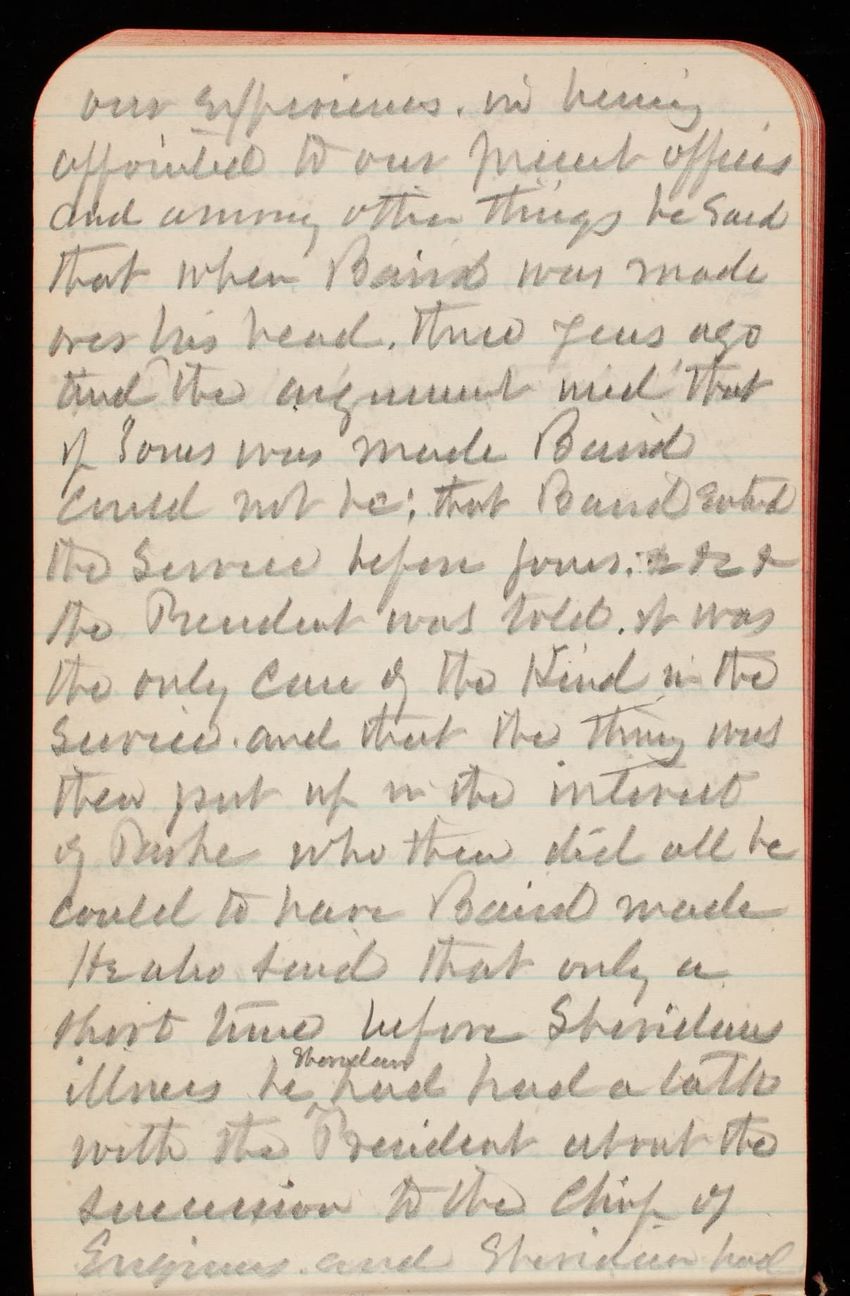 our experiences. in being
appointed to our present offices
and among other things he said
that when Baird was made
over his head, three years ago
and the argument used that
if Jones was made Baird
could not be; that Baird entered
the Service before Jones. & & &
the President was told. it was
the only case of the Kind in the
Service. and that the thing was
then put up in the interest
of Parke who then did all he
could to have Baird made
He also said that only a
short time before Sheridans
illness he Sheridan had had a talk
with the President about the
succession to the Chief of
Engineers. and Sheridan had